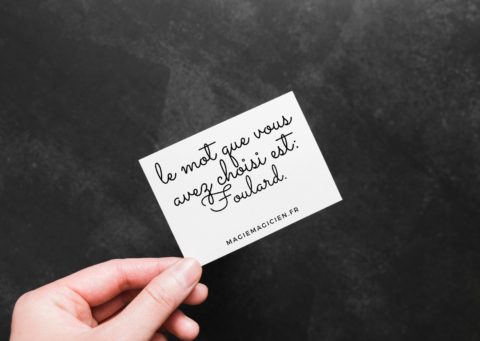 le mot que vous
avez choisi est:
Foulard.
MAGIEMAGICIEN.FR